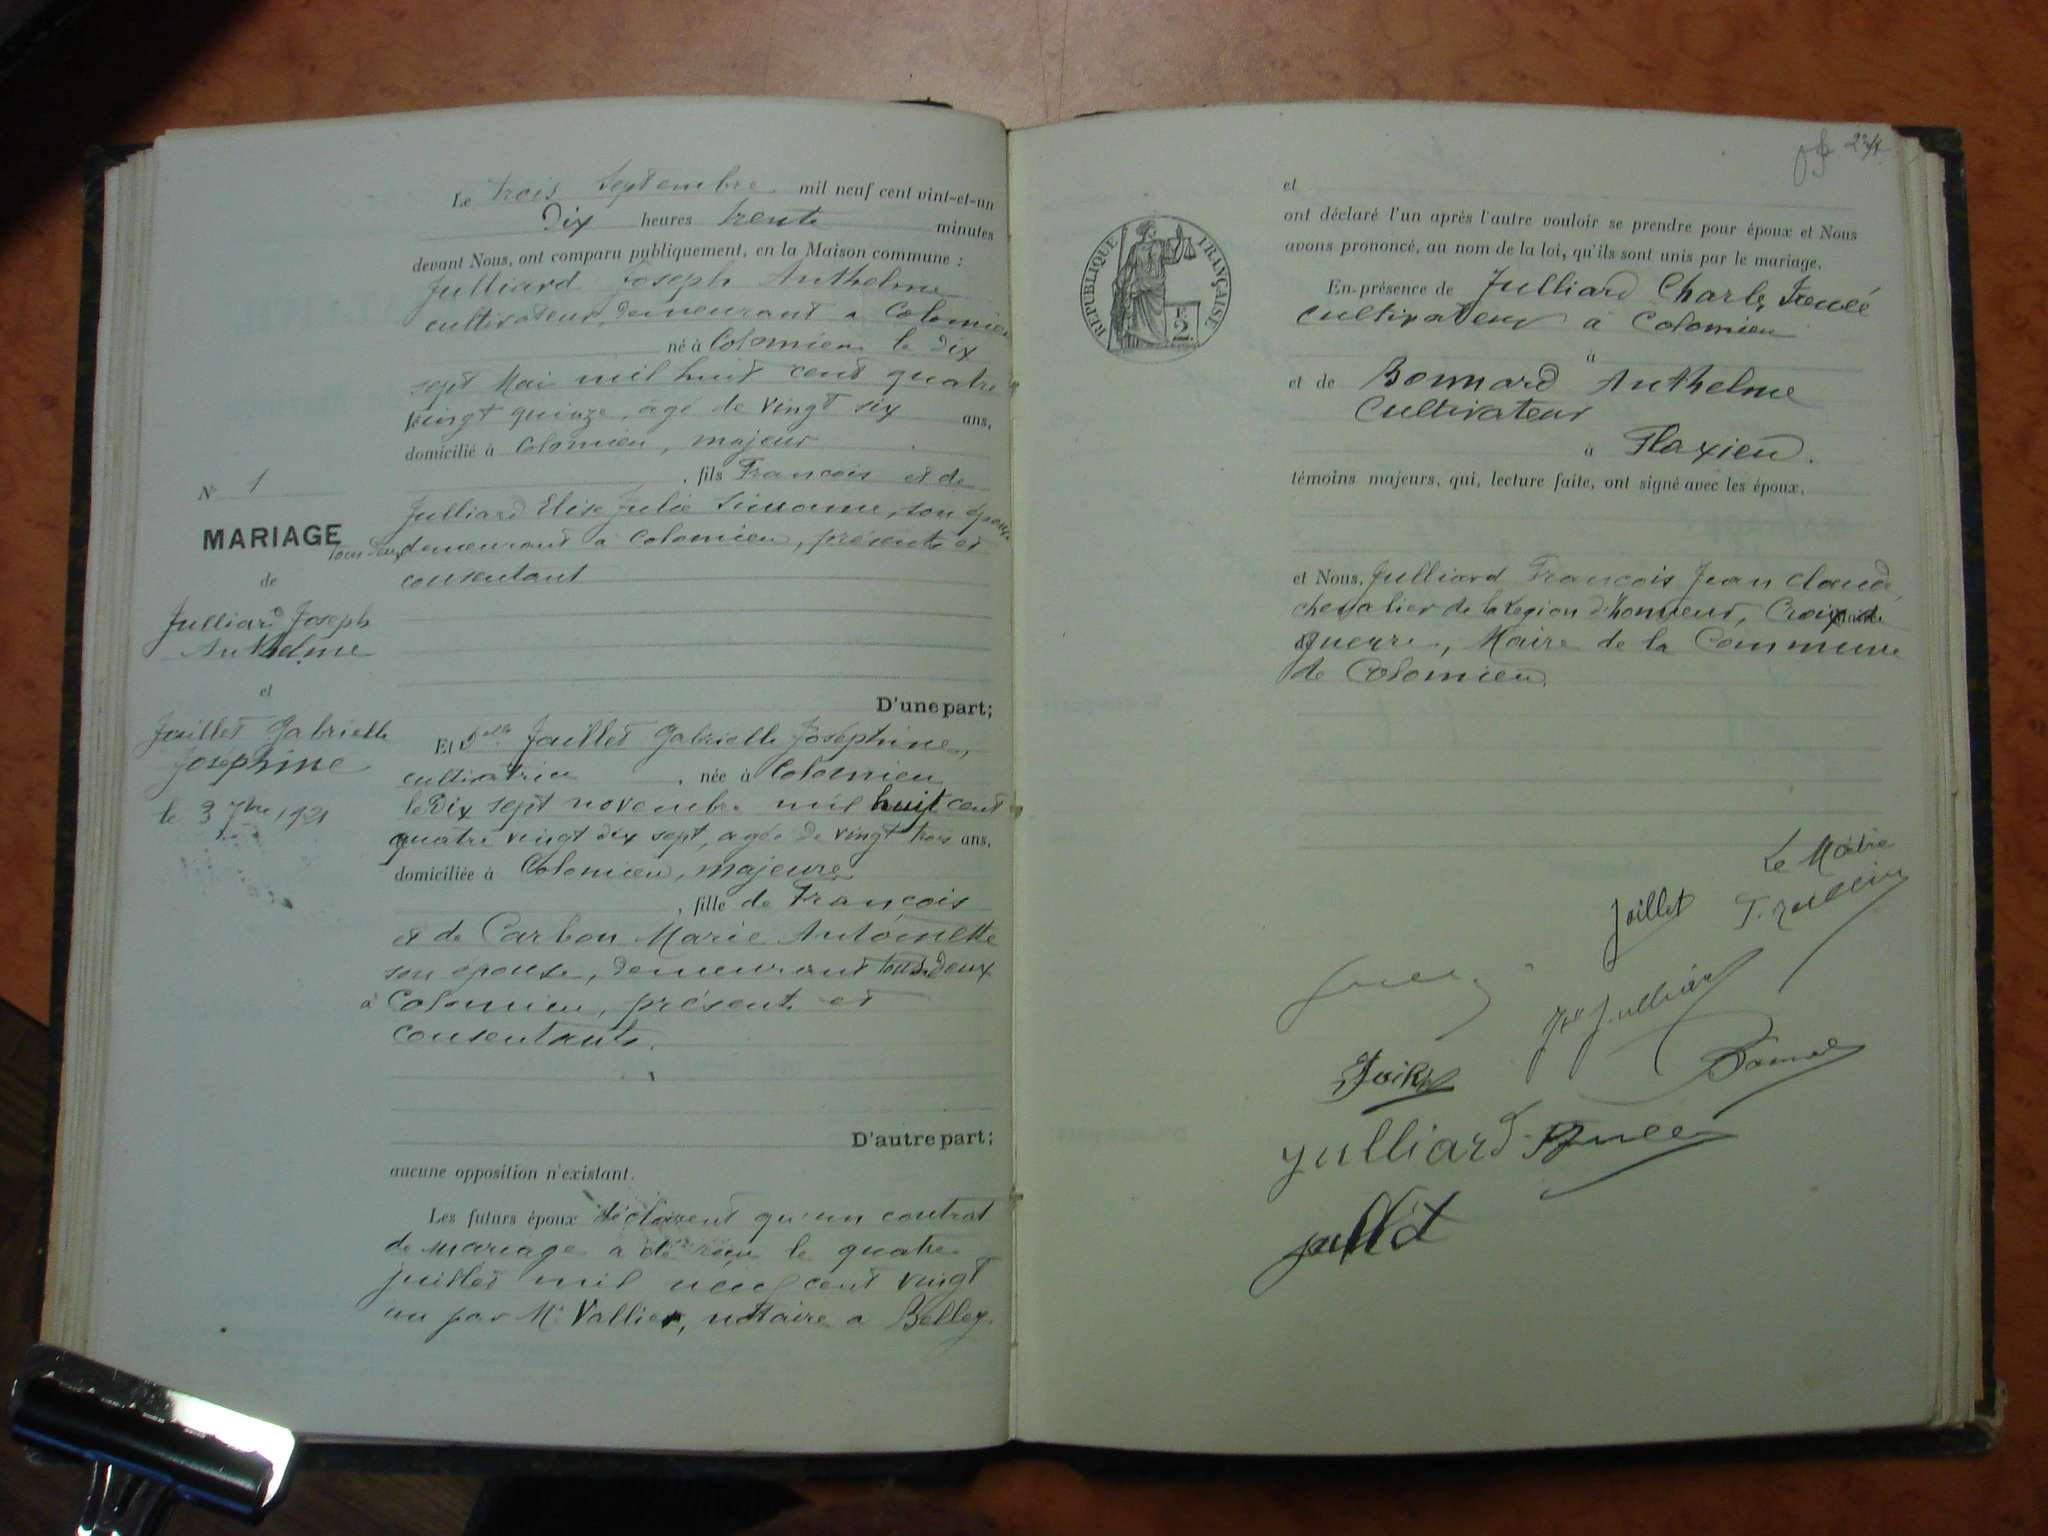 Le trois Septembre mil neuf cent vint-et-un
Dix heures trente minutes
devant Nous, ont comparu publiquement, en la Maison commune :
Julliard Joseph Anthelme
cultivateur, demeurant a Colomieu
né à Colomieu le dix
sept Mai mil huit cent quatre
vingt quinze, agé de vingt six ans,
domicilié à Colomieu, majeur
, fils Francois et de
Julliard Elise Julie, son épouse
tous deux demeurant à Colomieu, présents et
consentant
D'une part;
Et Delle Jaillet Gabrielle Joséphine,
cultivatrice, née à Colomieu
le Dix sept novembre mil huit cent
quatre vingt dix sept, agée de vingt trois ans,
domiciliée à Colomieu, majeure
, fille de François
et de Carbon Marie Antoinette
son épouse, demeurant tous deux
à Colomieu, présents et
consentants.
D'autre part;
aucune opposition n'existant.
Les futurs époux déclarent qu'un contrat
de mariage a été reçu le quatre
juillet mil neuf cent vingt
un par Me Vallier, notaire a Belley.
N° 1
MARIAGE
de
Julliard Joseph
Anthelme
et
Jaillet Gabrielle
Joséphine
le 3 7bre 1921
et
ont déclaré l'un après l'autre vouloir se prendre pour époux et Nous
avons prononcé, au nom de la loi, qu'ils sont unis par le mariage.
En présence de Julliard Charles
cultivateur à Colomieu
à
et de Bonnard Anthelme
Cultivateur
à Flaxieu.
témoins majeurs, qui, lecture faite, ont signé avec les époux,
et Nous, Julliard François Jean Claude,
chevalier de la Légion d'honneur, Croix de
guerre, Maire de la Commune
de Colomieu.
RÉPUBLIQUE FRANÇAISE
2
Le Maire
Jaillet
Julliard
Julliard
Jaillet